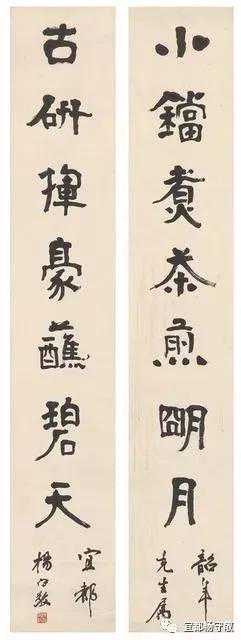 小鐺煮茶煎朙月
韶年
先生属
古研揮豪蘸碧天
宜都
楊守敬
宜都杨守敬